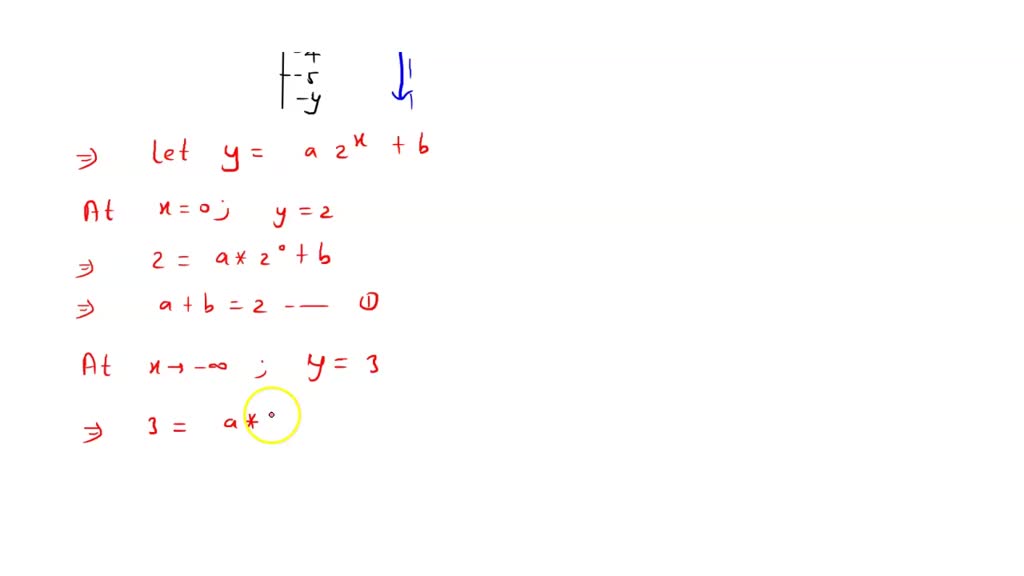 -4
-5
-y
⇒ Let y = a 2^x + b
At x = 0; y = 2
⇒ 2 = a * 2^0 + b
⇒ a + b = 2 -— ①
At x → -∞ ; y = 3
⇒ 3 = a *